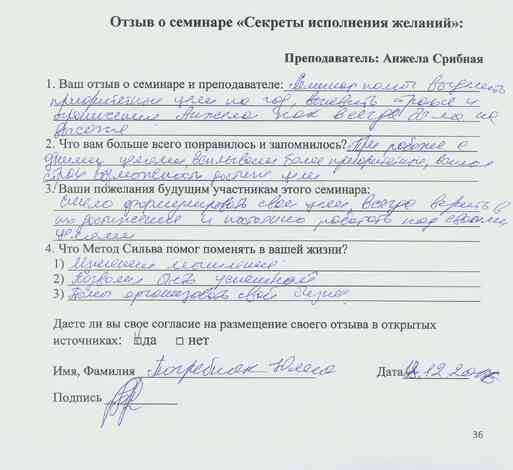 Отзыв о семинаре «Секреты исполнения желаний»:
Преподаватель: Анжела Срибная
1. Ваш отзыв о семинаре и преподавателе: Семинар помог
приоритетные цели на год, выявить страхи и
ограничения Анжела как всегда была на
высоте
2. Что вам больше всего понравилось и запомнилось? При работе с
целями, более приоритетные,
цели
3. Ваши пожелания будущим участникам этого семинара:
Смело формулировать свои цели всегда верить в
их достижение и постоянно работать над своими
целями
4. Что Метод Сильва помог поменять в вашей жизни?
1) мышление
2) Позволил быть успешной
3) Помог организовать свой бизнес
Даете ли вы свое согласие на размещение своего отзыва в открытых
источниках: да □ нет
Имя, Фамилия Погребняк Юлия Дата 12.20
Подпись
36